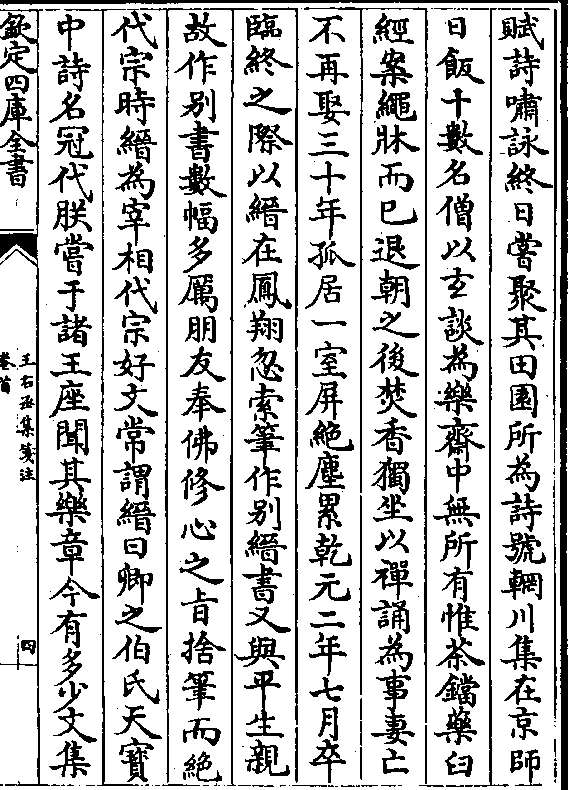 賦詩嘯詠終日嘗聚其田園所為詩號輞川集在京師
日飯十數名僧以玄談為樂齋中無所有惟茶鐺藥臼
經案繩牀而已退朝之後焚香獨坐以禪誦為事妻亡
不再娶三十年孤居一室屏絶塵累乾元二年七月卒
臨終之際以縉在鳳翔忽索筆作别縉書又與平生親
故作别書數幅多厲朋友奉佛修心之㫖捨筆而絶
代宗時縉為宰相代宗好文常謂縉曰卿之伯氏天寶
中詩名冠代朕嘗于諸王座聞其樂章今有多少文集
欽定四庫全書
王右丞集箋注
卷首
四